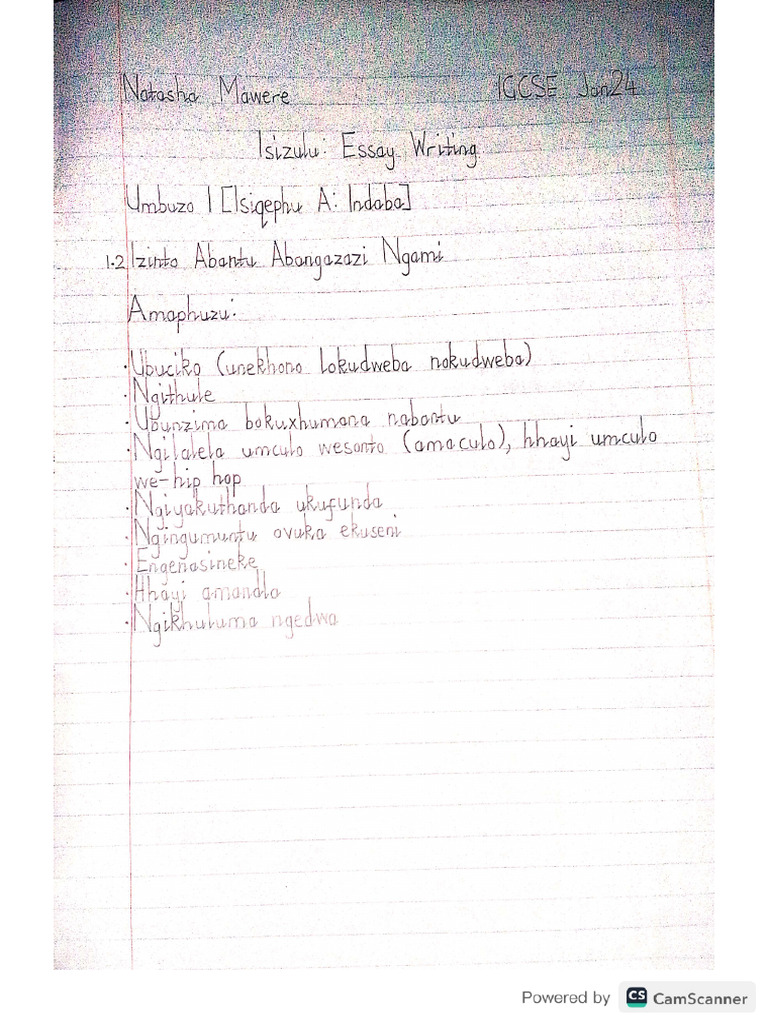 Natasha Mawere IGCSE Jan24
Isizulu: Essay Writing
Umbuzo 1 [Isiqephu A: Indaba]
1.2 Izinto Abantu Abangazazi Ngami
Amaphuzu:
· Ubuciko (unekhono lokudweba nokudweba)
· Ngithule
· Ubunzima bokuxhumana nabantu
· Ngilalela umculo wesonto (amaculo), hhayi umculo
we-hip hop
· Ngiyakuthanda ukufunda
· Ngingumuntu ovuka ekuseni
· Engenasineke
· Hhayi amandla
· Ngikhuluma ngedwa
Powered by CS CamScanner